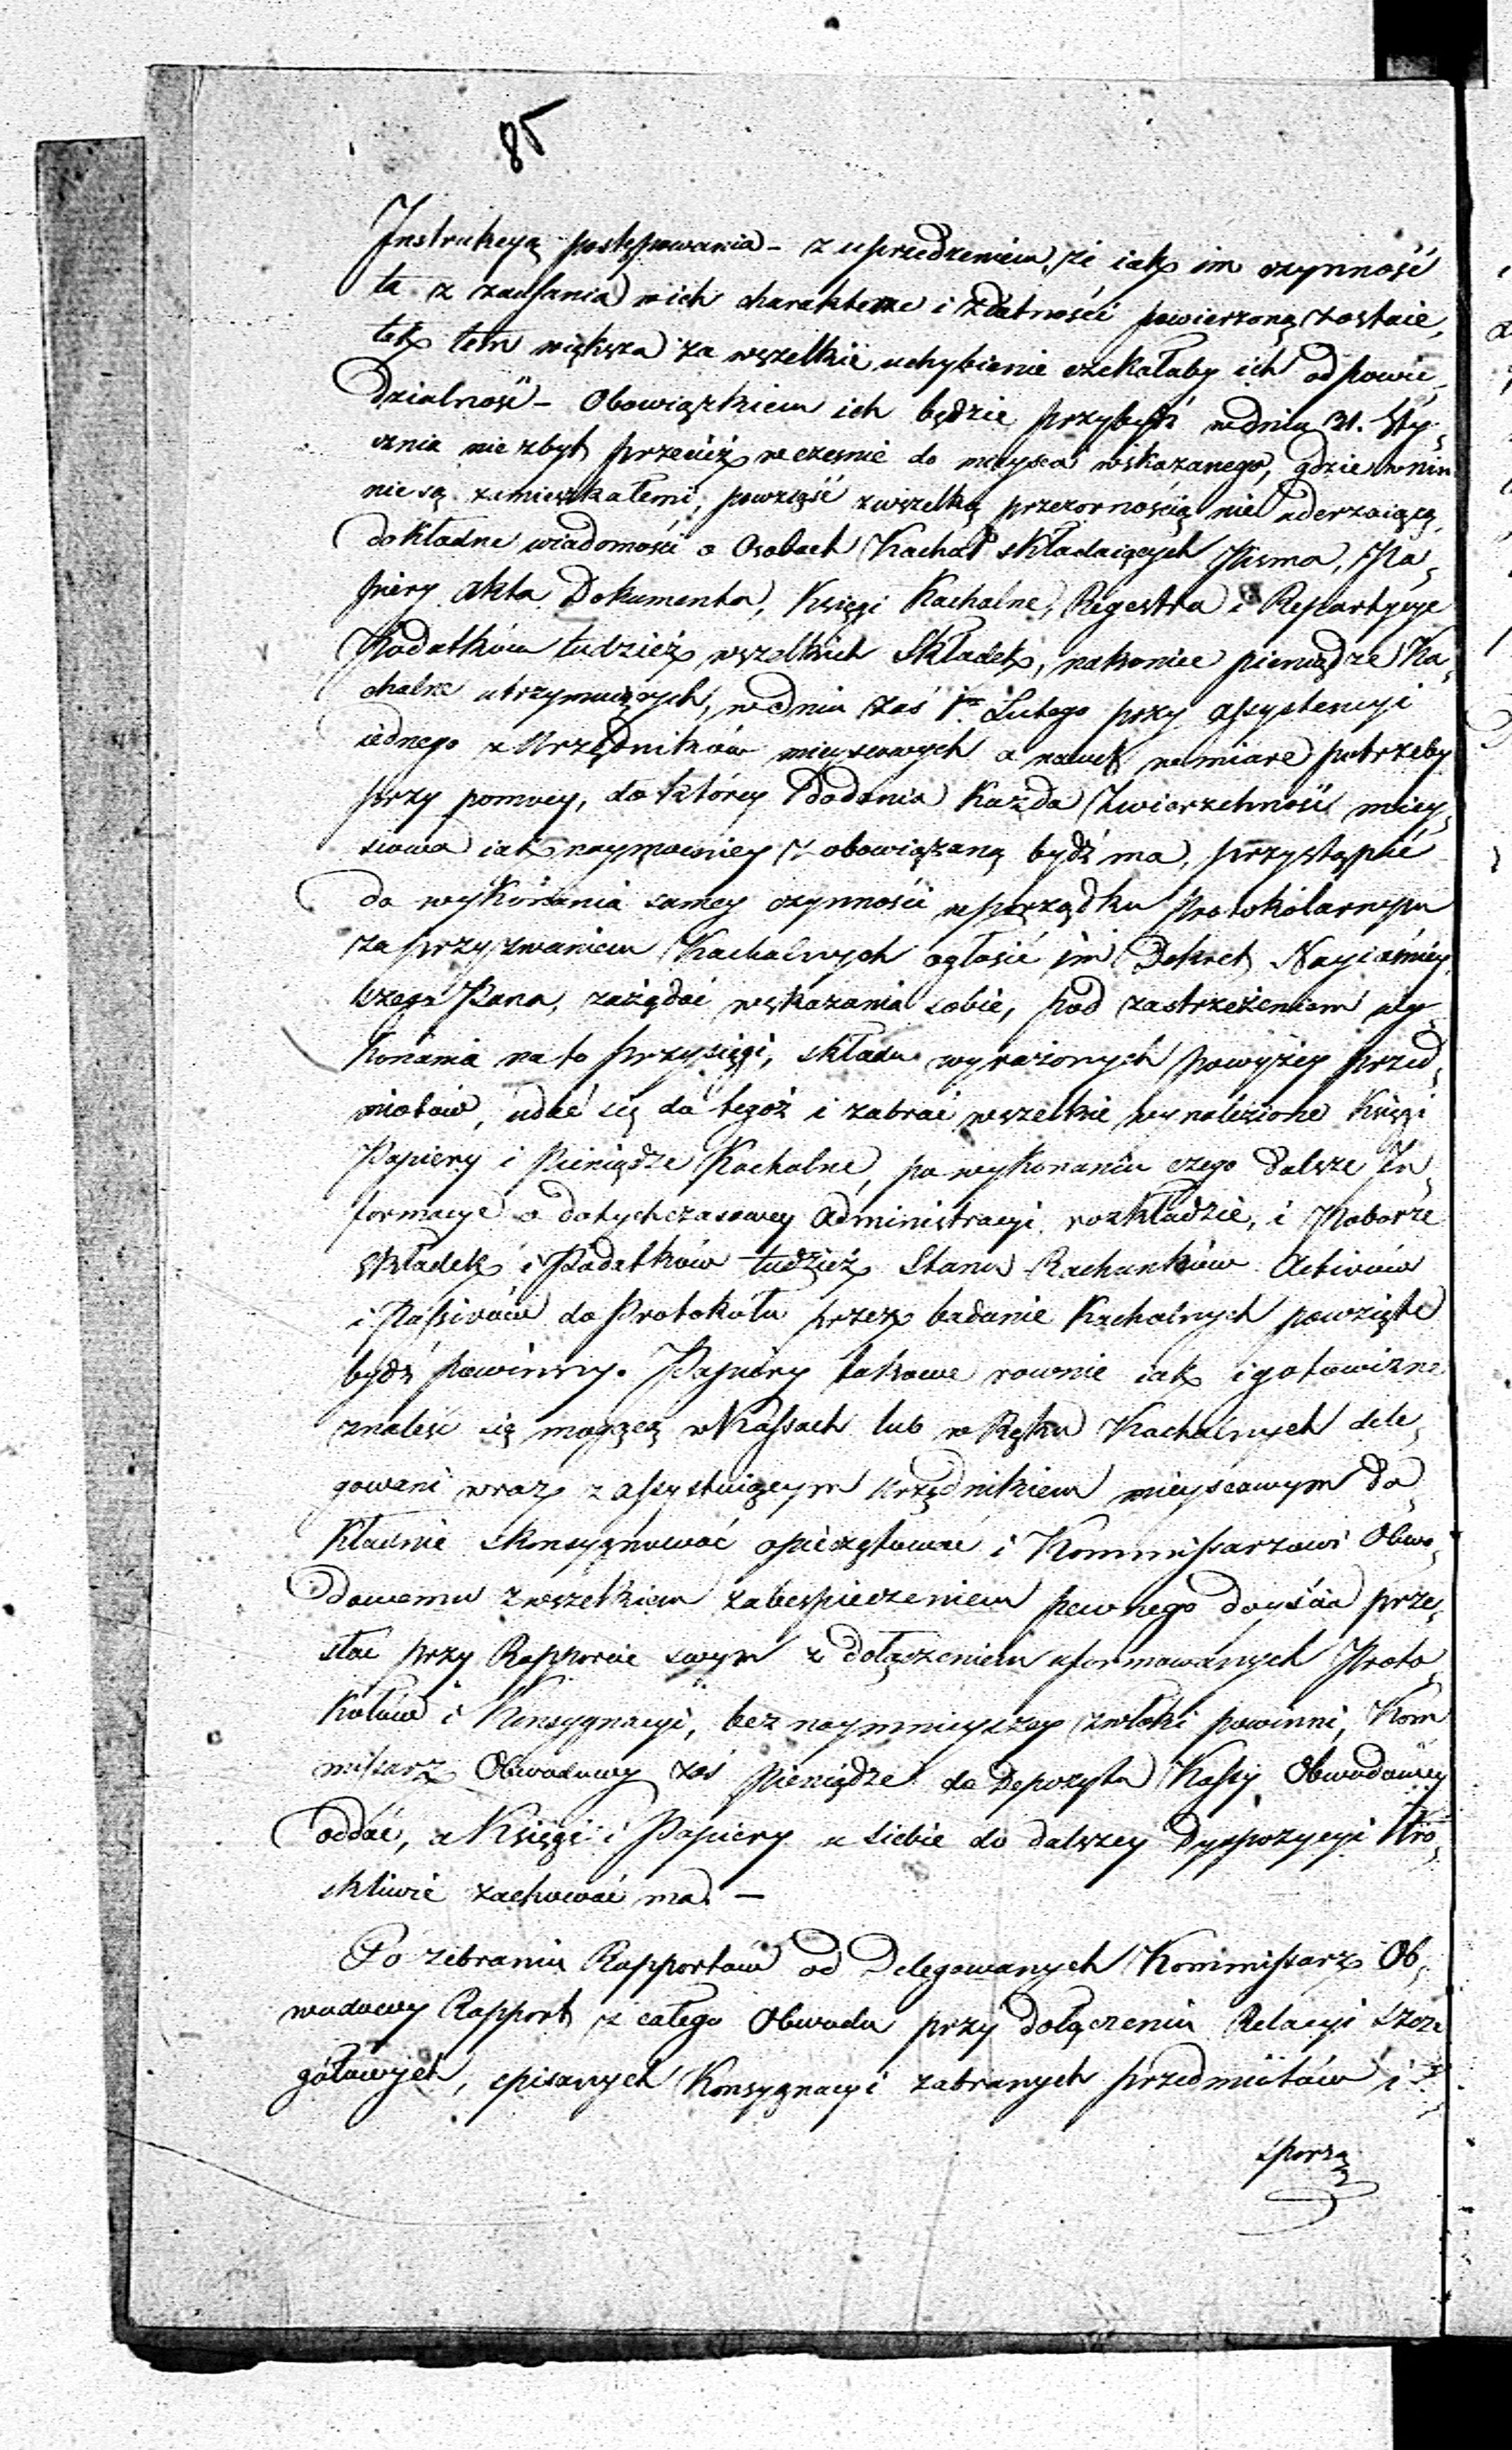 85
Instrukcyą postępowania – z uprzedzeniem, że iak im czynność
ta z zaufania w ich charakterze i zdatności powierzoną zostaie,
tak tem większa za wszelkie uchybienie czekałaby ich odpowie„
dzialność – Obowiązkiem ich będzie przybydź w dniu 31. Sty„
cznia nie zbyt przecież wcześnie do mieysca wskazanego, gdzie w nim
nie są zamieszkałemi, powziąść z wszelką przezornością nie uderzaiącą,
dokładne wiadomości o Osobach Kachał składaiących Pisma, Pa„
piery Akta Dokumenta, Księgi Kachalne, Regestra i Repartycye
Podatków tudzież wszelkich Składek, nakoniec pieniądze Ka„
chalne utrzymuiących, w dniu zaś 1m Lutego przy assystencyi
iednego z Urzędników mieyscowych a nawet w miarę potrzeby
przy pomocy, do którey dodania Każda Zwierzchność miey„
scowa iak naymocniey zobowiązaną bydź ma, przystąpić
do wykonania samey czynności w porządku Protokólarnym
za przyzwaniem Kachalnych ogłosić im Dekret Nayiaśniey„
szego Pana, zażądać wskazania sobie, pod zastrzeżeniem wy„
konania na to przysięgi, składu wyrażonych powyżey przed„
miotów, udać się do tegoż i zabrać wszelkie wynalezione Księgi
Papiery i Pieniądze Kachalne, po wykonaniu czego dalsze In„
formacye o dotychczasowey Administracyi rozkładzie, i Poborze
Składek i Podatków tudzież Stanu Rachunków Activów
i Passivów do Protokułu przez badanie Kachalnych powzięte
bydź powinny. Papiery takowe rownie iak i gotowiznę
znaleść się mogącą w Kassach lub w Ręku Kachalnych dele„
gowani wraz z assystuiącym Urzędnikiem mieyscowym do„
kładnie skonsygnować opieczętować i Kommissarzowi Obwo„
dowemu z wszelkiem zabespieczeniem pewnego doyścia prze„
słać przy Rapporcie swym z dołączeniem uformowanych Proto„
kołów i Konsygnacyi, bez naymnieyszey zwłoki powinni, Kom
missarz Obwodowy zaś pieniądze do Depozytu Kassy Obwodowey
oddać, a Księgi i Papiery u siebie do dalszey Dyspozycyi tro„
skliwie zachować ma. –
Po zebraniu Rapportów od Delegowanych Kommissarz Ob„
wodowy Rapport z całego Obwodu przy dołączeniu Relacyi szcze
gółowych, spisanych Konsygnacyi zabranych przedmiotów i
sporzą„